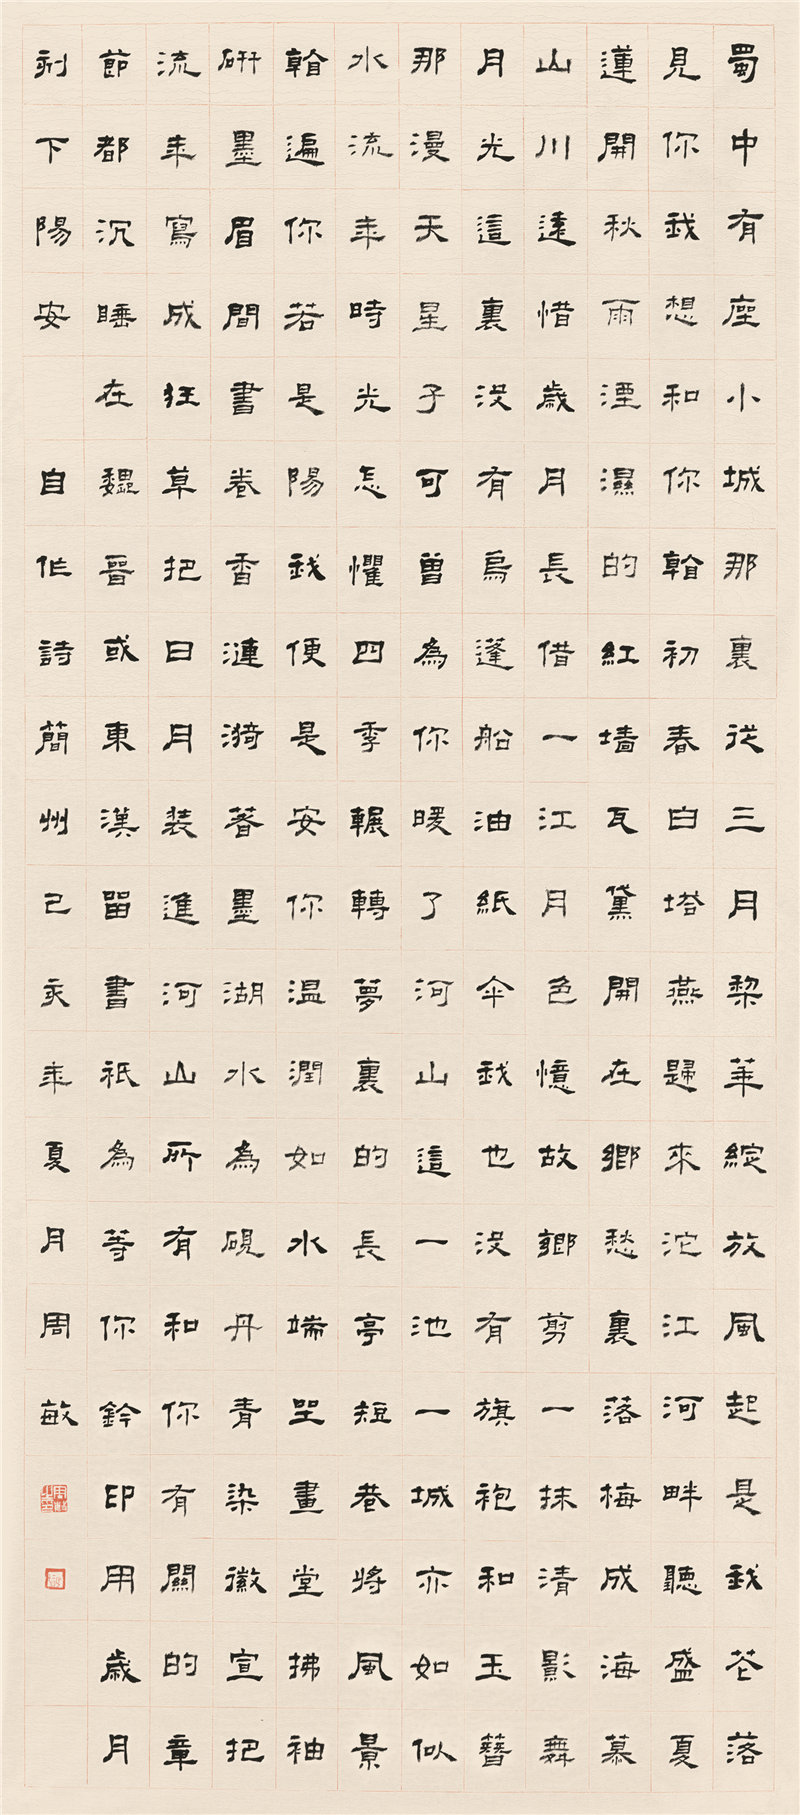 蜀中有座小城那裏從三月棃華綻放風起是我花落
見你我想和你翰初春白塔燕歸來沱江河畔聽盛夏
蓮開秋雨湮濕的紅墙瓦黛開在鄉愁裏落梅成海慕
山川遠惜歲月長借一江月色憶故鄉剪一抹清影舞
月光這裏沒有烏蓬船油紙伞我也沒有旗袍和玉簪
那漫天星子可曾為你暖了河山這一池一城亦如似
水流年時光怎懼四季輾轉夢裏的長亭短巷將風景
翰遍你若是陽我便是安你溫潤如水端坐畫堂拂袖
研墨眉間書卷香漣漪著墨湖水為硯丹青染徽宣把
流年寫成狂草把日月装進河山所有和你有關的章
節都沉睡在魏晉或東漢留書祇為等你鈐印用歲月
刻下陽安 自作詩簡州己亥年夏月周敏